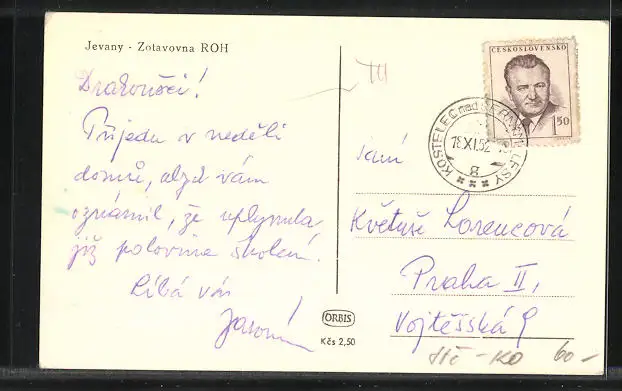 Jevany - Zotavovna ROH
Drahoušci!
Přijedu v neděli
domů, abych vám
oznámil, že uplynula
již polovina školení.
Líbá vás
Jaromír
ČESKOSLOVENSKO
1.50
KOSTELEC nad ČERNÝMI LESY
18.XI.52
8
paní
Květuše Lorencová
Praha II,
Vojtěšská 9
ORBIS
Kčs 2,50
60-